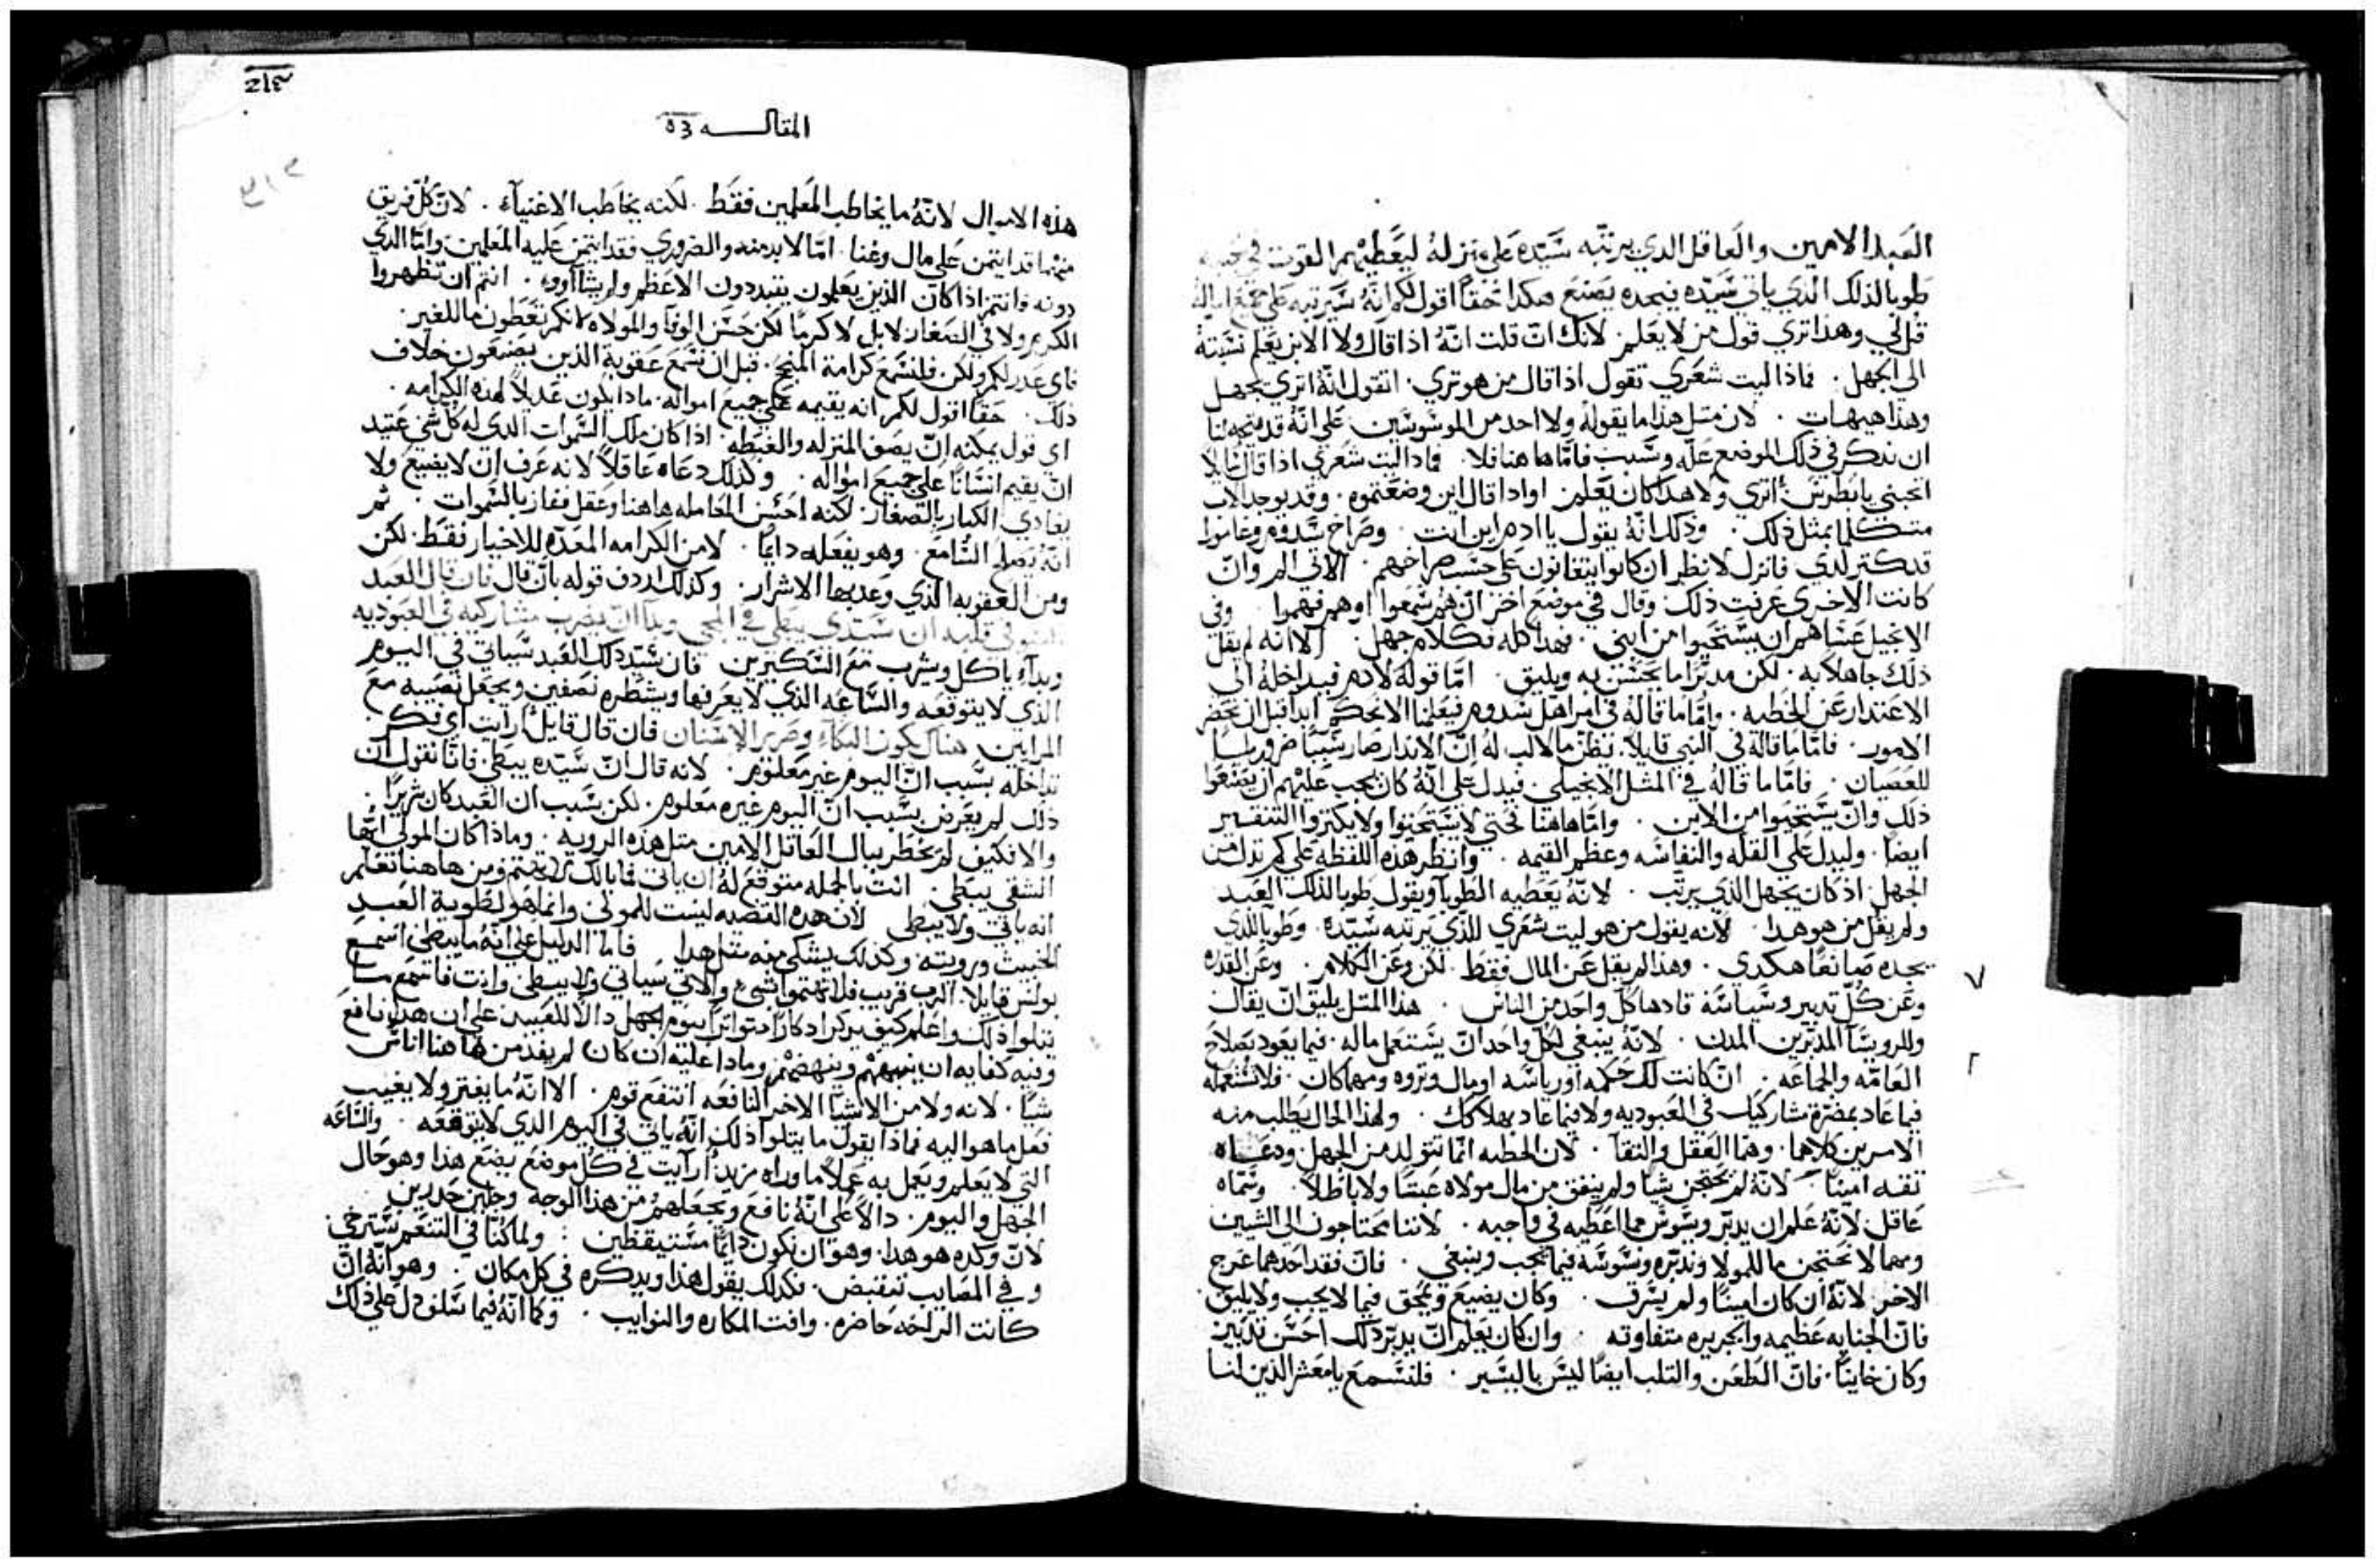 العبد الامين والعاقل الدي يرتبه سيده علي منزله ليعطيهم القوت في
طوبا لذلك الدي ياتي سيده فيجده يصنع هكدا حقا اقول لكم انه سيرتبه علي جميع
قل لي وهذا تري قول من لا يعلم لانك ان قلت انه اذا قال ولا الابن يعلم نسبته
الي الجهل . فماذا ليت شعري تقول اذا قال من هو تري . اتقول انه اتري يجهل
وهذا هيهات . لان متل هذا ما يقوله ولا احد من الموسوسين . علي انه قد يتجه لنا
ان ندكر في ذلك الموضع عله وسبب فاما هاهنا فلا . فماذا ليت شعري اذا قال
اتحبني يا بطرس أتري ولا هدا كان يعلم . او اذا قال اين وضعتموه . وقد يوجد الاب
متكلما بمثل ذلك . وذلك انه يقول يا ادم اين انت . وصراخ سدوم وغامورا
قد كتر لدي فانزل لانظر ان كانوا يتقانون علي حسب صراخهم . الاتي الي وان
كانت الاخري عرفت ذلك وقال في موضع اخر ان هم سمعوا او هم فهموا . وفي
الانجيل عساهم ان يستحيوا من ابني . فهدا كله فكلام جهل . الا انه لم يقل
ذلك جاهلا به . لكن مدبرا ما يحسن به ويليق . اما قوله لادم فيداخله الي
الاعتدار عن الخطيه . واما ما قاله في امر اهل سدوم فيعلمنا الا نحكم ابدا قبل ان نحضر
الامور . فاما ما قاله في النبي قايلا .
للعصيان . فاما ما قاله في المثل الانجيلي . فيدل علي انه كان يجب عليهم ان يصنعوا
ذلك وان يستحيوا من الابن . واما هاهنا فحتي لا يستحيوا ولا يكتروا التنقير
ايضا . وليدل علي القله والنفاسه وعظم القيمه . وانظر هده اللفظه علي كم تدل من
الجهل . اذ كان يجهل الذي يرتب . لانه يعطيه الطوبا ويقول طوبا لذلك العبد
ولم يقل من هو هدا . لانه يقول من هو ليت شعري الذي يرتبه سيده . وطوبا للذي
يجده صانعا هكدي . وهذا لم يقل عن المال فقط . لكن وعن الكلام . وعن القدره
وعن كل تدبير وسياسه قادها كل واحد من الناس . هذا المتل يليق ان يقال
وللروسا المدبرين المدن . لانه ينبغي لكل واحد ان يستعمل ماله . فيما يعود بصلاح
العامه والجماعه . ان كانت لك حكمه او رياسه او مال وثروه ومهما كان . فلا تستعمله
فيما عاد بمضرة مشاركيك في العبوديه ولا فيما عاد بهلاكك . ولهذا الحال يطلب منه
الامرين كلاهما . وهما العقل والتقا . لان الخطيه انما تتولد من الجهل ودعاه
تقه امينا لانه لم يحتجن شيا ولم ينفق من مال مولاه عبثا ولا باطلا . وسماه
عاقل لانه علم ان يدبر ويسوس مما اعطيه في واجبه . لاننا محتاجون الي الشيين
وهما لا نحتجن ما للمولا وندبره ونسوسه فيما يجب وينبغي . فان فقد احدهما عرج
الاخر لانه ان كان امينا ولم يسرق . وكان يضيع ويمحق فيما لا يجب ولا يليق .
فان الجنايه عظيمه والجريره متفاوته . وان كان يعلم ان يدبر ذلك احسن تدبير
وكان خاينا . فان الطعن والتلب ايضا ليس باليسير . فلنسمع يا معشر الذين لنا
المقاله
هذه الاموال لانه ما يخاطب المعلمين فقط . لكنه يخاطب الاغنيآء . لان كل فريق
منهما قد ايتمن علي مال وغنا . اما لا بد منه والضروري فقد ايتمن عليه المعلمين واما الدي
دونه فانتم اذا كان الذين يعلمون يتبددون الاعظم . انتم ان تظهروا
الكرم ولا في الصغار لا بل لا كرما لكن حسن الوفا والمولاه لانكم تعطون ما للغير .
فاي عدر لكم ولكن فلنسمع كرامة المنجح . قبل ان نسمع عقوبة الذين يصنعون خلاف
ذلك . حقا اقول لكم انه يقيمه علي جميع امواله . ماذا يكون عديلا لهذه الكرامه .
اي قول يمكنه ان يصف المنزله والغبطه . اذا كان ملك السموات الدي له كل شي عتيد
ان يقيم انسانا علي جميع امواله . وكذلك دعاه عاقلا لانه عرف ان لا يضيع ولا
يغادي الكبار بالصغار . لكنه احسن المعامله هاهنا وعقل ففاز بالسموات . ثم
انه يصلح السامع . وهو يفعله دايما . لا من الكرامه المعده للاخيار فقط . لكن
ومن العقوبه الذي وعد بها الاشرار . وكذلك اردف قوله بان قال فان قال العبد
السو في قلبه ان سيدي يبطي في المجي وبدا ان يضرب مشاركيه في العبوديه
وبدآء ياكل ويشرب مع السكيرين فان سيد ذلك العبد سياتي في اليوم
الذي لا يتوقعه والساعه الذي لا يعرفها ويشطره نصفين ويجعل نصيبه مع
المرايين هناك يكون البكاء وصرير الاسنان فان قال قايل ارايت اي فكر
تداخله بسبب ان اليوم غير معلوم . لانه قال ان سيده يبطي . فانا نقول ان
ذلك لم يعرض بسبب ان اليوم غيره معلوم . لكن بسبب ان العبد كان شريرا .
والا فكيف لم يخطر ببال العاقل الامين متل هذه الرويه . وماذا كان المولي ايها
الشقي يبطي . انت بالجمله متوقع له ان ياتي فما بالك لا تهتم ومن هاهنا نعلم
انه ياتي ولا يبطي لان هده القضيه ليست للمولي وانما هو لطوية العبد
الخبيث ورويته . وكذلك يشكي منه متل هدا . فاما الدليل علي انه ما يبطي اسمع
بولس قايلا . الرب قريب فلا تهتموا بشي . والاتي سياتي ولا يبطي وانت فاسمع ما
يتلوا ذلك واعلم كيف يدكر ادكارا متواترا بيوم الجهل دالا للعبيد علي ان هدا نافع
وفيه كفايه ان ينبههم وينهضهم وماذا عليه ان كان لم يفد من هاهنا اناس
شيا . لانه ولا من الاشيا الاخر النافعه انتفع قوم . الا انه ما يفتر ولا يغيب
فعل ما هو اليه فماذا يقول ما يتلوا ذلك انه ياتي في اليوم الذي لا يتوقعه . والساعه
التي لا يعلم ويعمل به عملا ما وراه مزيد أرايت في كل موضع يضع هذا وهو حال
الجهل واليوم . دالا علي انه نافع ويجعلهم من هذا الوجه وجلين حدرين
لان وكده هو هدا . وهو ان نكون دايما مستيقظين . ولما كنا في التنعم نسترخي
وفي المصايب ننقبض . فكذلك يقول هذا ويدكره في كل مكان . وهو انه ان
كانت الراحه حاضره . وافت المكاره والنوايب . وكما انه فيما سلف دل علي ذلك